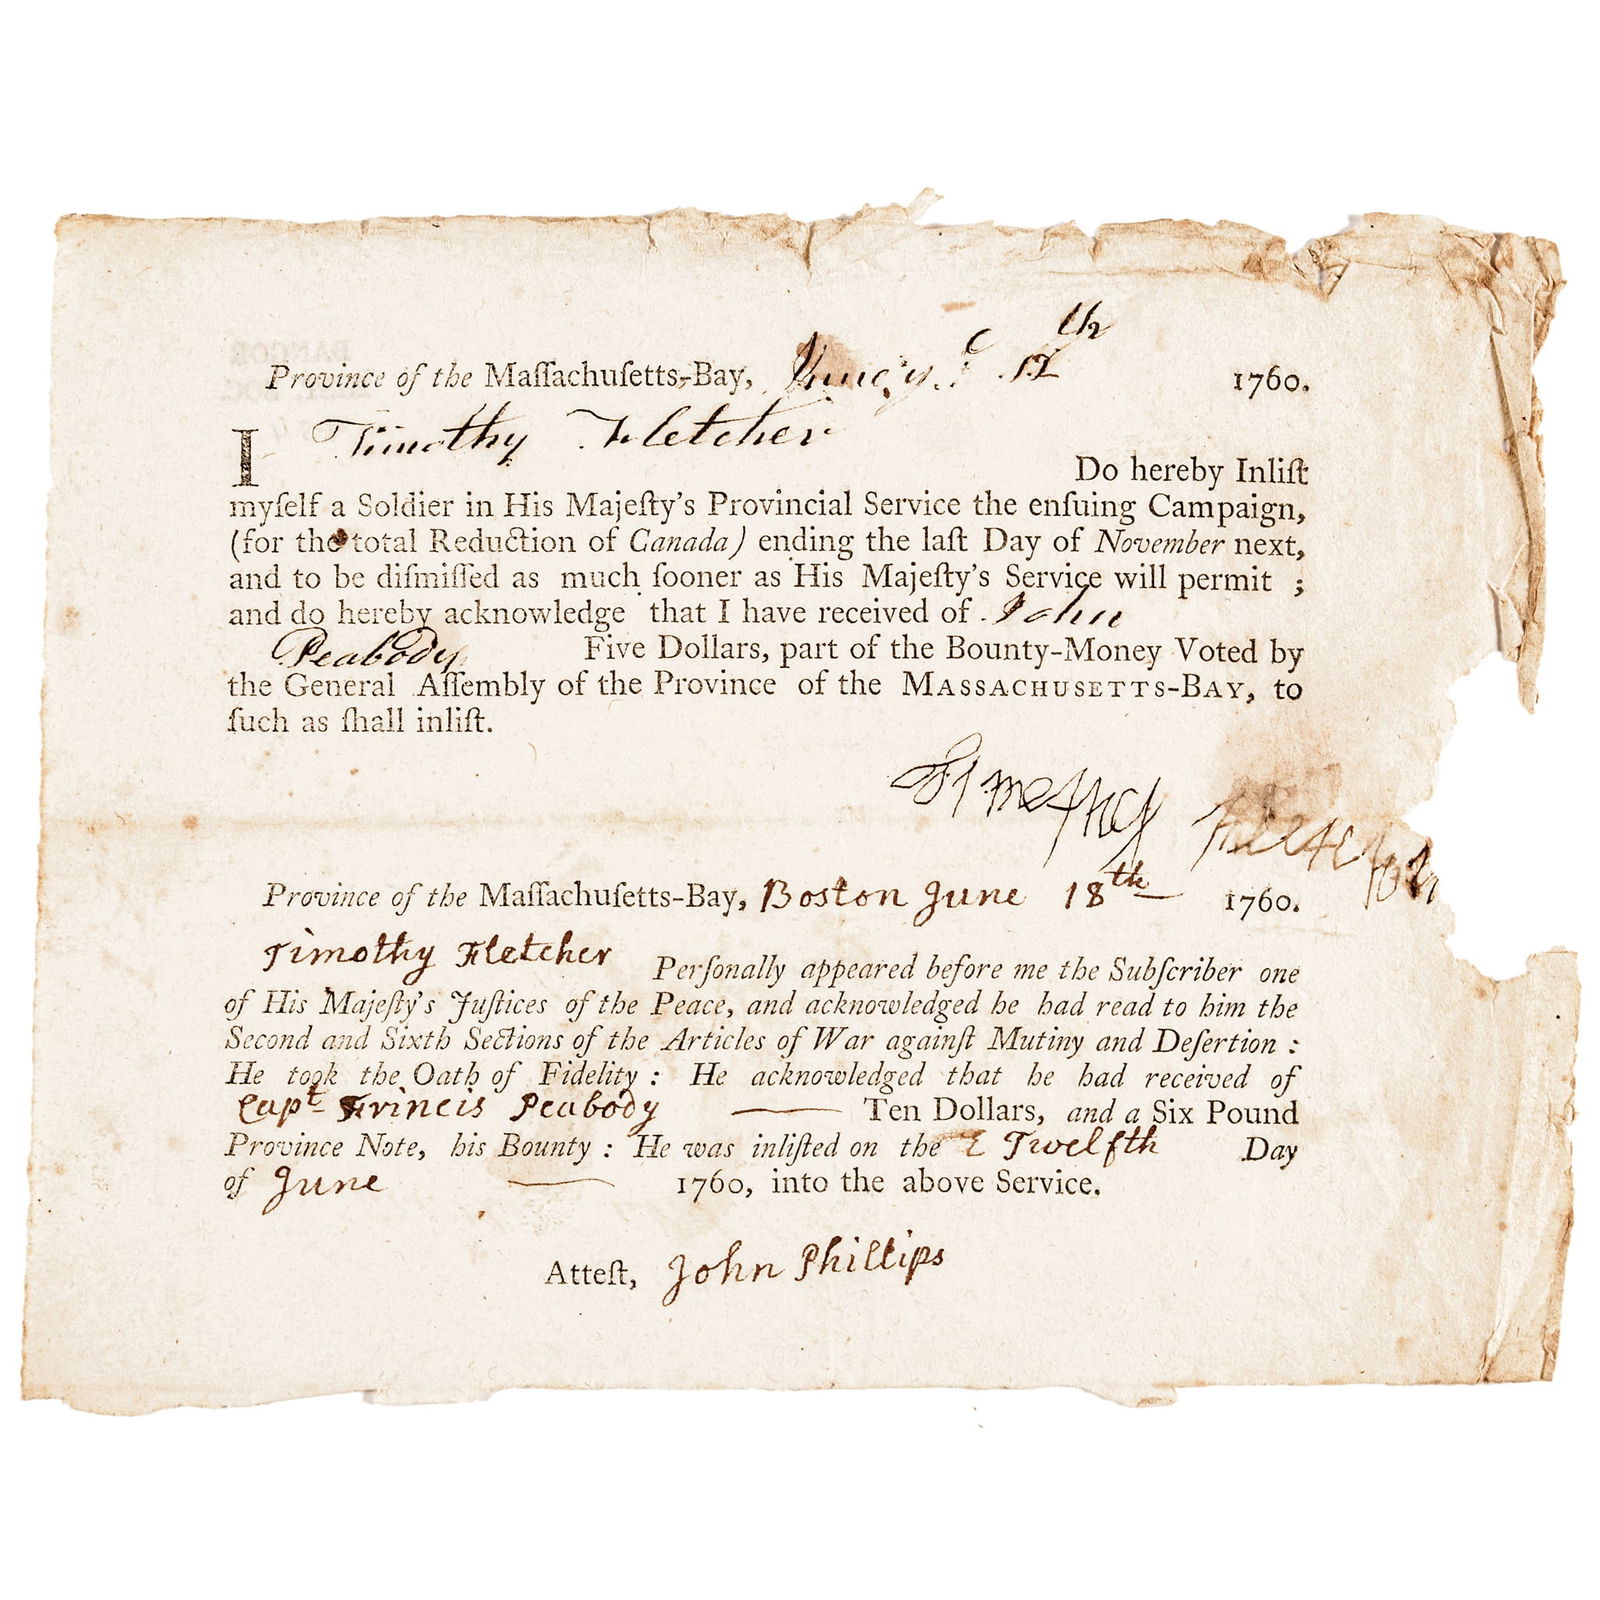 Province of the Maſſachuſetts-Bay, June ye 12th 1760.
I Timothy Fletcher Do hereby Inliſt
myſelf a Soldier in His Majeſty's Provincial Service the enſuing Campaign,
(for the total Reduction of Canada) ending the laſt Day of November next,
and to be diſmiſſed as much ſooner as His Majeſty's Service will permit ;
and do hereby acknowledge that I have received of John
Peabody Five Dollars, part of the Bounty-Money Voted by
the General Aſſembly of the Province of the MASSACHUSETTS-BAY, to
ſuch as ſhall inliſt.
Province of the Maſſachuſetts-Bay, Boston June 18th 1760.
Timothy Fletcher Perſonally appeared before me the Subſcriber one
of His Majeſty's Juſtices of the Peace, and acknowledged he had read to him the
Second and Sixth Sections of the Articles of War againſt Mutiny and Deſertion :
He took the Oath of Fidelity : He acknowledged that he had received of
Capt Frincis Peabody Ten Dollars, and a Six Pound
Province Note, his Bounty : He was inliſted on the Twelfth Day
of June 1760, into the above Service.
Atteſt, John Phillips